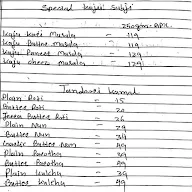 Special Kaju Subji
250gm-APX
Kaju Kari Masala - 119
Kaju Butter Masala - 119
Kaju Paneer Masala - 129
Kaju cheese masala - 129
Tandoori Kamal
Plain Roti - 15
Butter Roti - 20
Butter Roti - 26
Plain Nan - 29
Butter Nan - 39
Garlic Butter Nan - 49
Plain Parotha - 39
Butter Parotha - 49
Plain Kulcha - 39
Butter Kulcha - 49